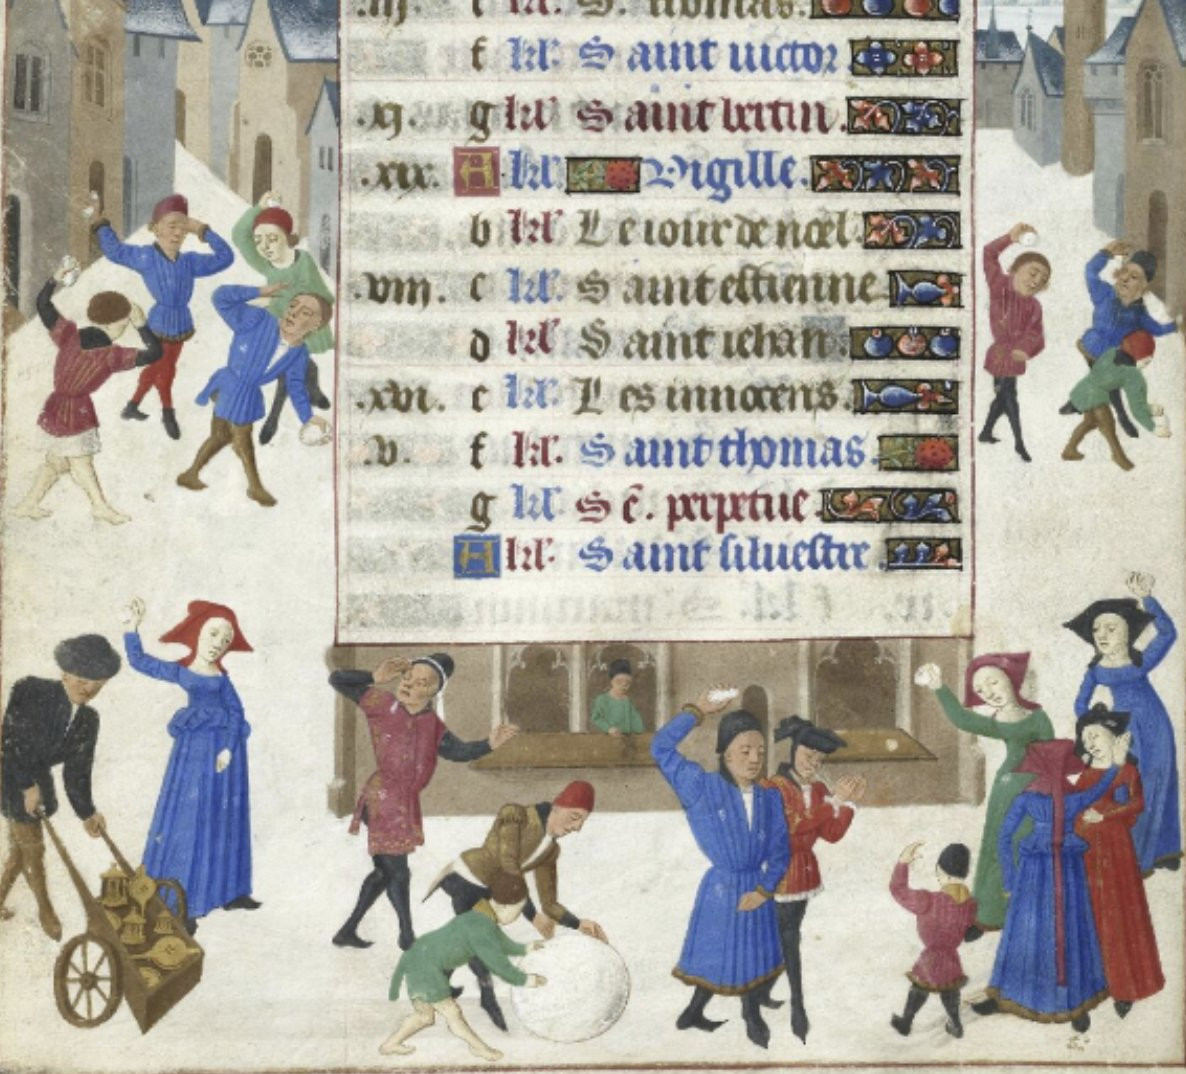 .iij. c kl'. S. thomas.
f kl'. Saint uictor
.xj. g kl' Saint bertin.
.xix. A kl' Vigille.
b kl' Le iour de noel.
.viij. c kl'. Saint estienne
d kl' Saint iehan.
.xvi. e kl'. Les innocens.
.v. f kl'. Saint thomas
g kl' S ē. perpetue
A kl'. Saint siluestre